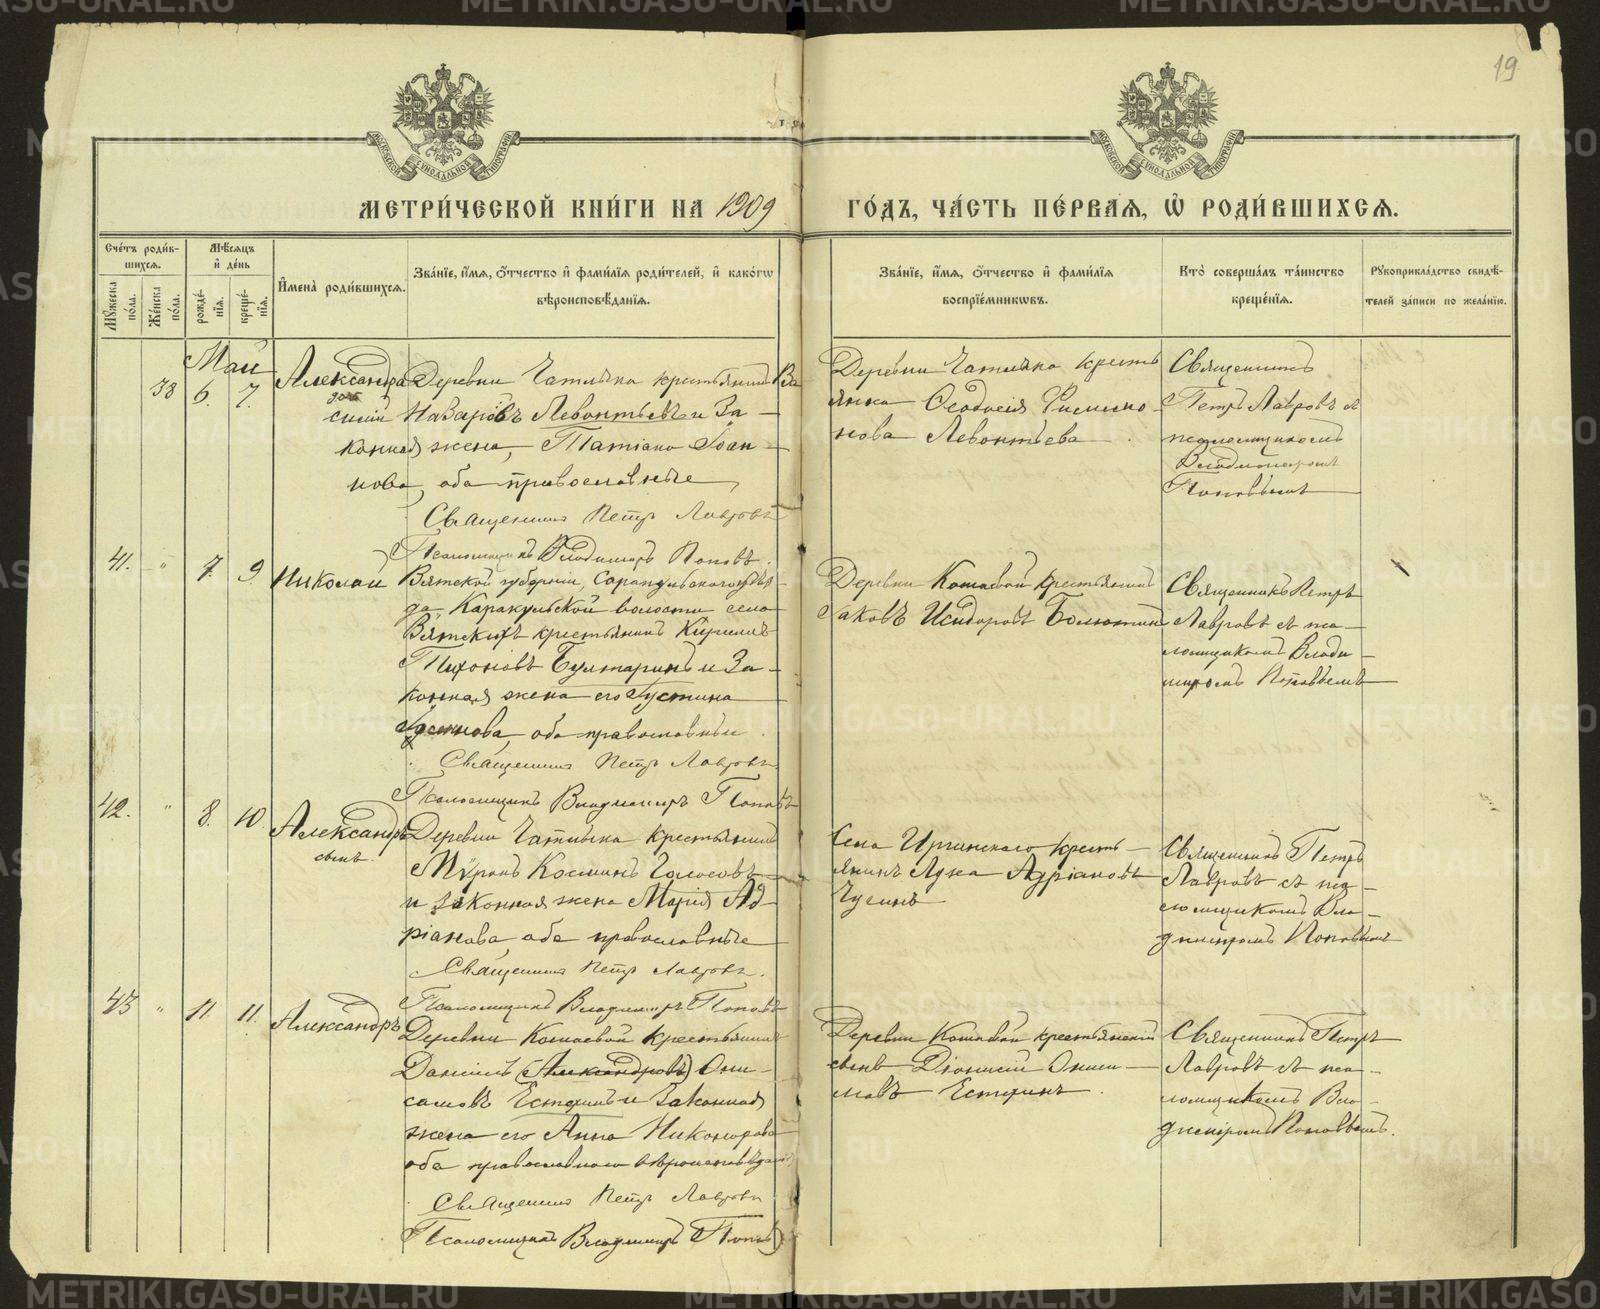 19
МЕТРИ́ЧЕСКОЙ КНИ́ГИ НА 1909 ГО́ДЪ, ЧА́СТЬ ПЕ́РВАЯ, Ѡ РОДИ́ВШИХСЯ.
Сче́тъ роди́в-
шихся.
Му́жеска по́ла.
Же́нска по́ла.
Мѣ́сяцъ
и҆ де́нь
рожде́нїя.
креще́нїя.
И҆мена̀ роди́вшихся.
Зва́нїе, и҆́мя, ѻ҆́тчество и҆ фами́лїя роди́телей, и҆ како́гѡ
вѣроисповѣ́данїя.
Зва́нїе, и҆́мя, ѻ҆́тчество и҆ фами́лїя
воспрїе́мникѡвъ.
Кто̀ соверша́лъ та́инство
креще́нїя.
Рꙋкоприкла́дство свидѣ́-
телей за́писи по жела́нїю.
Май
38 6. 7. Александра
дочь
Деревни Чатлыка крестьянинъ Ва
силій Назаровъ Левонтьевъ и За-
конная жена, Татіана Іоан-
нова, оба православные
Священникъ Петръ Лавровъ
Псаломщикъ Владимиръ Поповъ.
Деревни Чатлыка кресть
янка Ѳеодосія Филимо-
нова Левонтьева
Священникъ
Петръ Лавровъ съ
псаломщикомъ
Владимиромъ
Поповымъ
41. " 7. 9. Николай
Вятской губерніи, Сарапульскаго уѣз-
да, Каракульской волости села
Вятскихъ крестьянинъ Кирилъ
Тихоновъ Булгаринъ и За-
конная жена его Іустина
оба православныи
Священникъ Петръ Лавровъ
Псаломщикъ Владимиръ Поповъ
Деревни Кошаевой крестьянинъ
Іаковъ Исидоровъ
Священникъ Петръ
Лавровъ съ пса-
ломщикомъ Влади-
миромъ Поповымъ
42. " 8. 10 Александръ
сынъ
Деревни Чатлыка крестьянинъ
Мѵронъ Косминъ Голосовъ
и законная жена Марія Ад-
ріанова, оба православные
Священникъ Петръ Лавровъ.
Псаломщикъ Владимиръ Поповъ
Села Иргинскаго кресть-
янинъ Лука Адріановъ
Священникъ Петръ
Лавровъ съ пса-
ломщикомъ Вла-
димиромъ Поповымъ
43 " 11. 11. Александръ
Деревни Кошаевой крестьянинъ
Даніилъ (Александровъ) Они-
симовъ Естехинъ и Законная
жена его Анна Никонорова
оба православнаго вѣроисповѣданія
Священникъ Петръ Лавровъ
Псаломщикъ Владимиръ Поповъ
Деревни Кошаевой крестьянскій
сынъ Діонисій Ониси-
мовъ Естехинъ.
Священникъ Петръ
Лавровъ съ пса-
ломщикомъ Вла-
димиромъ Поповымъ.
METRIKI.GASO-URAL.RU